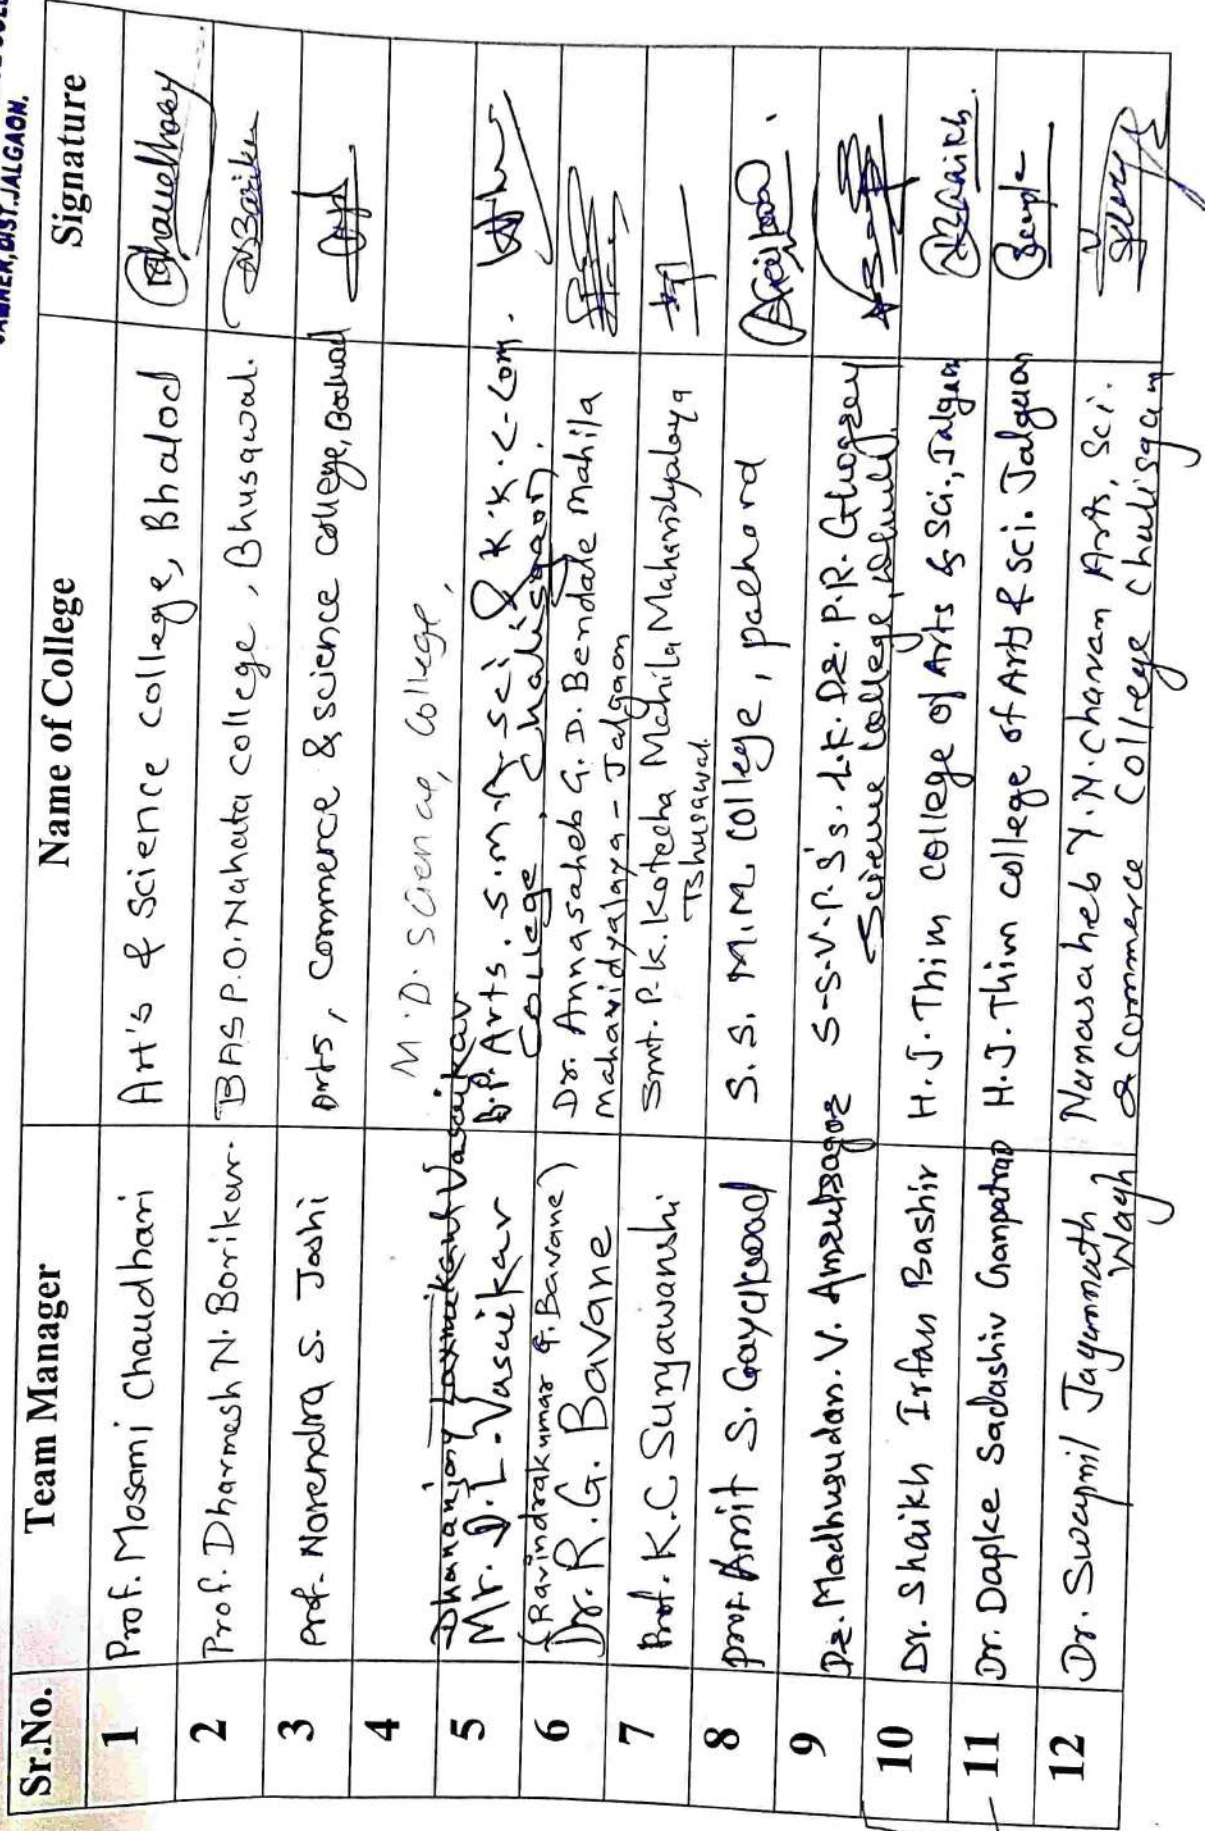 JAMNER, DIST. JALGAON.
Sr.No. Team Manager Name of College Signature
1 Prof. Mosami Chaudhari Art's & Science College, Bhalod
2 Prof. Dharmesh N. Borikar. BAS P.O. Nahata College, Bhusawal.
3 Prof. Narendra S. Joshi Arts, Commerce & science college, Bodwad
4 M.D. Science, College,
Dhananjay Laxmikant Vasaikar
5 Mr. D. L. Vasaikar B.P. Arts. S.M.A. Sci & K.K.C. Com.
College, Chalisgaon.
(Ravindrakumar G. Bavane)
6 Dr. R. G. Bavane Dr. Annasaheb G. D. Bendale Mahila
Mahavidyalaya - Jalgaon
7 Prof. K. C. Suryawanshi Smt. P. K. Kotecha Mahila Mahavidyalaya
Bhusawal.
8 prof. Amit S. Gaykwad S. S. M.M. College, pachora
9 Dr. Madhusudan. V. Amrutsagar S-S-V-P-S's. L.K. Dr. P.R. Ghogrey
Science College, Dhule.
10 Dr. Shaikh Irfan Bashir H.J. Thim College of Arts & Sci., Jalgaon
11 Dr. Dapke Sadashiv Ganpatrao H.J. Thim college of Arts & Sci. Jalgaon
12 Dr. Swapnil Jagannath Wagh Nanasaheb Y. N. Chavan Arts, Sci.
& Commerce College Chalisgaon